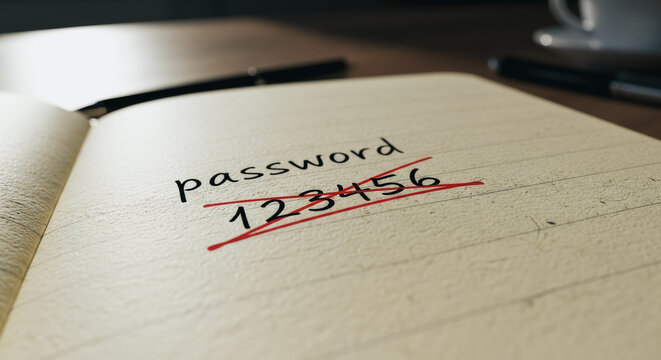 password
123456